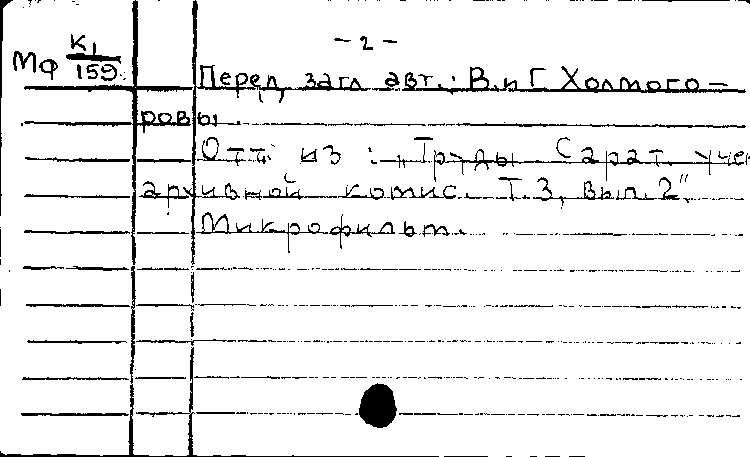 - 2 -
МФ К1/159
Перед загл авт.: В. и Г. Холмого-
ровы.
Отт. из: „Труды Сарат. учен
архивной комис. Т.3, вып.2".
Микрофильм.